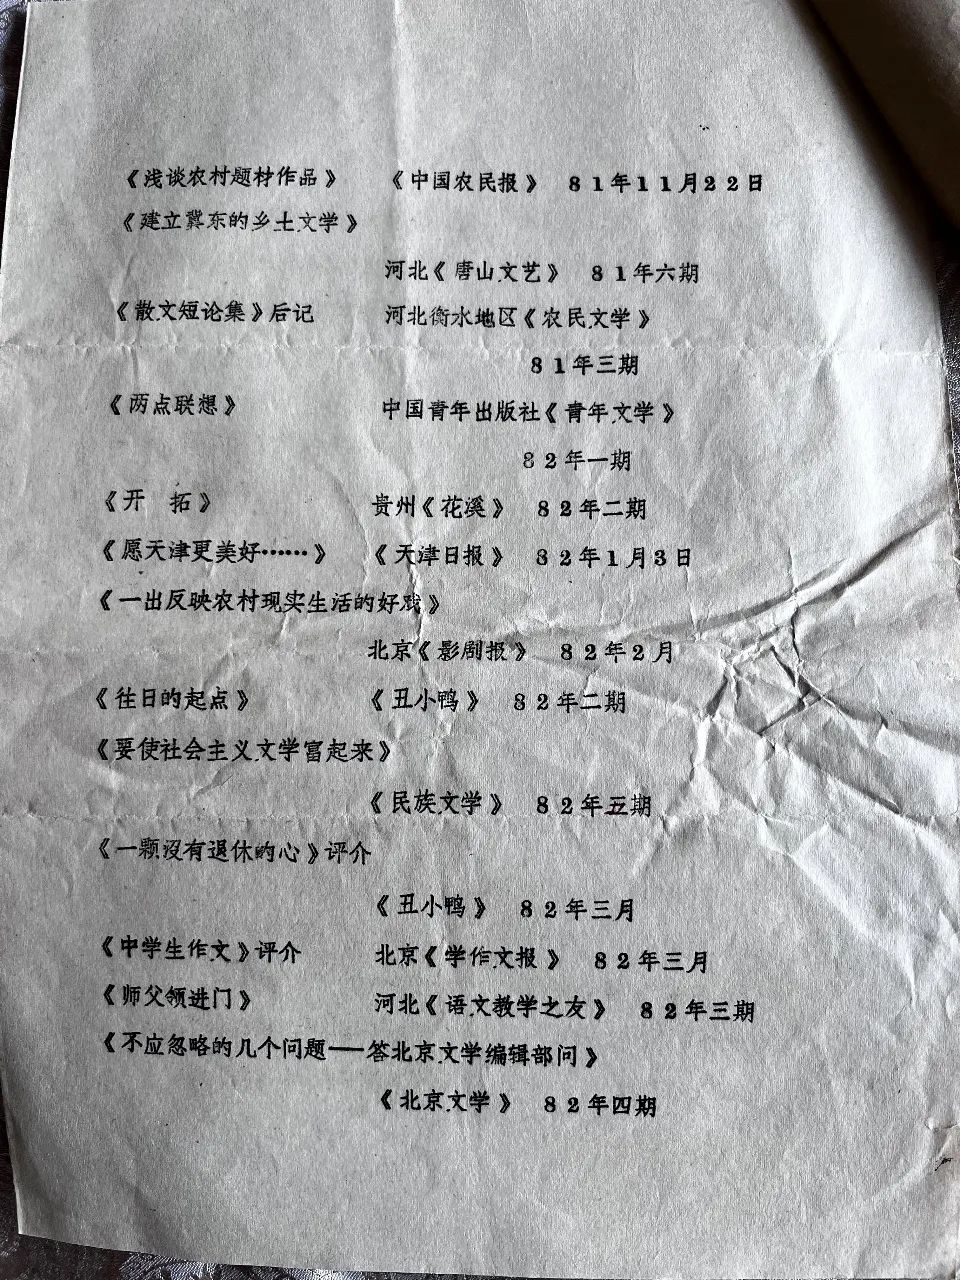 《浅谈农村题材作品》 《中国农民报》 81年11月22日
《建立冀东的乡土文学》
河北《唐山文艺》 81年六期
《散文短论集》后记 河北衡水地区《农民文学》
81年三期
《两点联想》 中国青年出版社《青年文学》
82年一期
《开 拓》 贵州《花溪》 82年二期
《愿天津更美好……》 《天津日报》 82年1月3日
《一出反映农村现实生活的好戏》
北京《影剧报》 82年2月
《往日的起点》 《丑小鸭》 82年二期
《要使社会主义文学富起来》
《民族文学》 82年五期
《一颗没有退休的心》评介
《丑小鸭》 82年三月
《中学生作文》评介 北京《学作文报》 82年三月
《师父领进门》 河北《语文教学之友》 82年三期
《不应忽略的几个问题——答北京文学编辑部问》
《北京文学》 82年四期